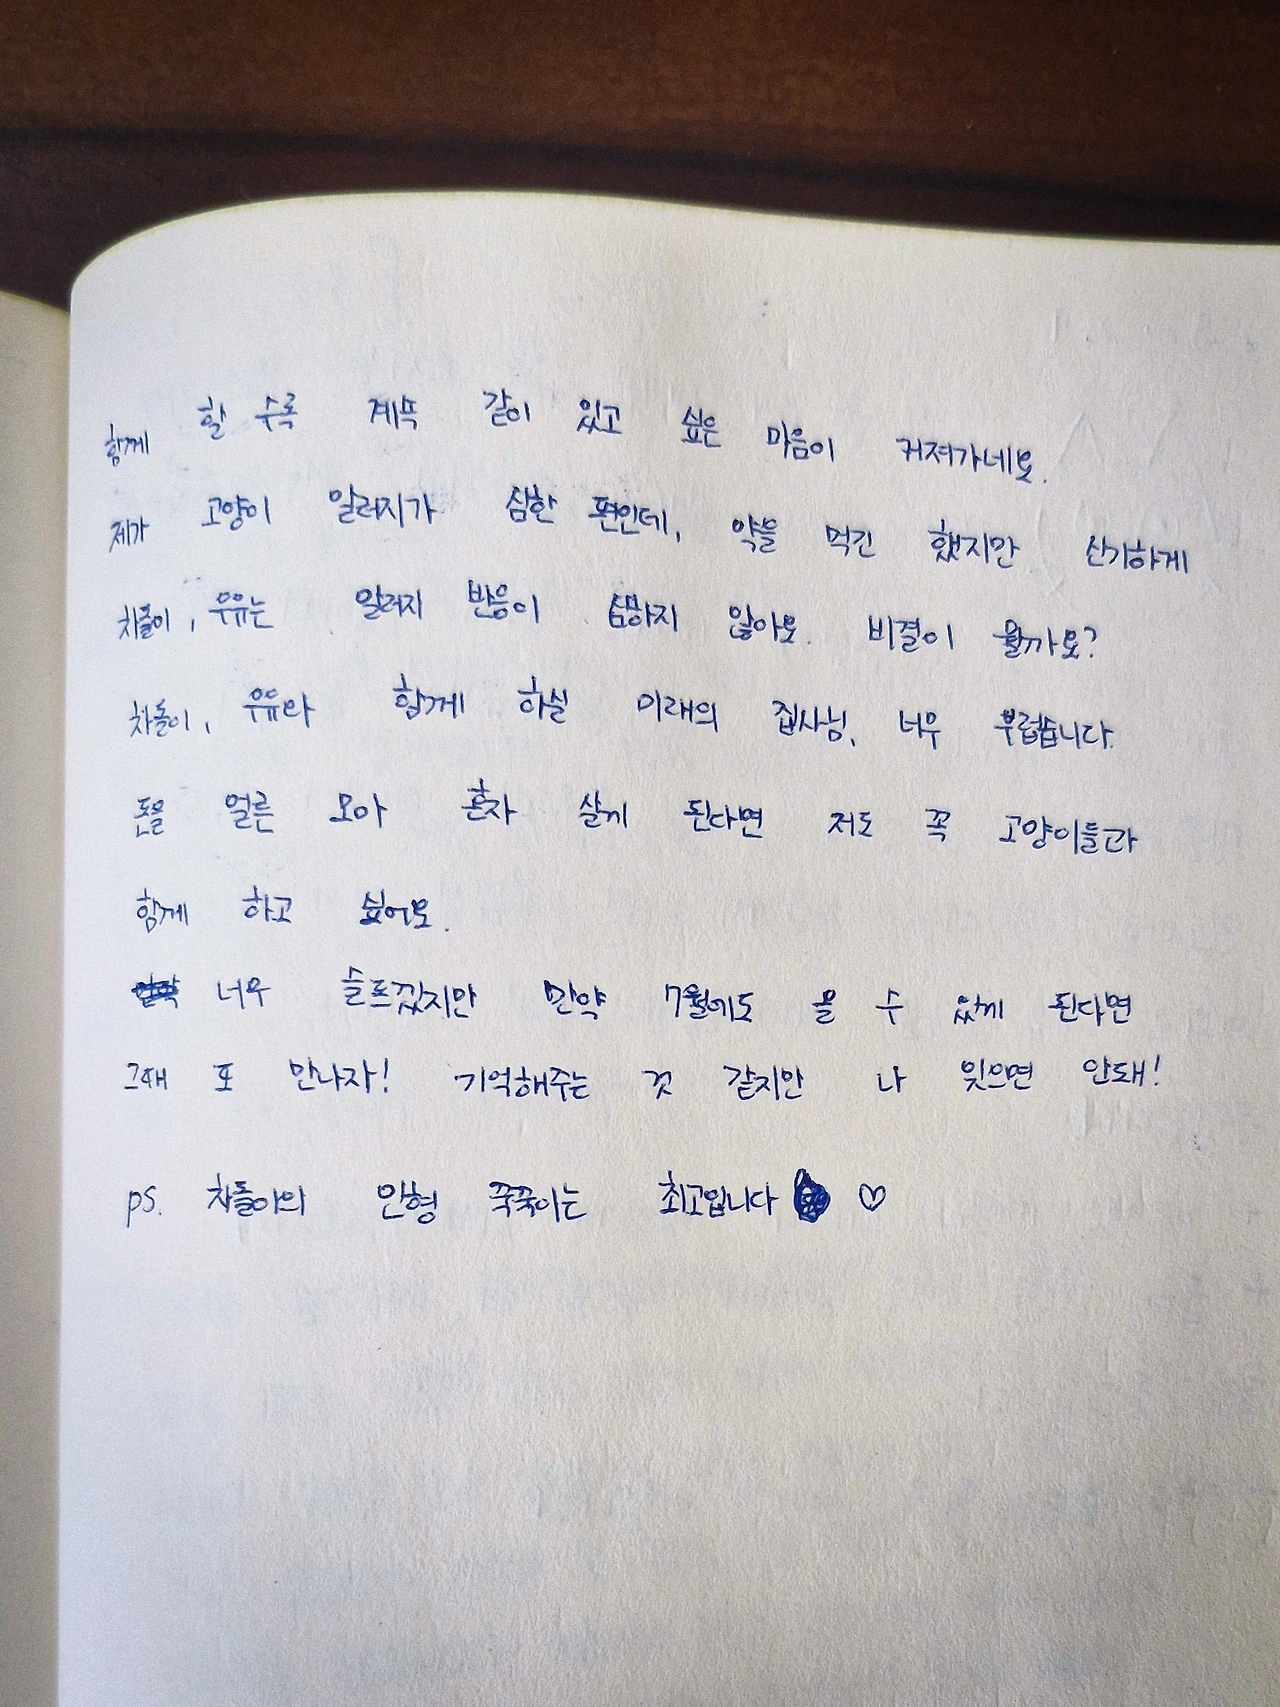 함께 할 수록 계쏙 같이 있고 싶은 마음이 커져가네요.
제가 고양이 알러지가 심한 편인데, 약을 먹긴 했지만 신기하게
차돌이, 우유는 알러지 반응이 심하지 않아요. 비결이 뭘까요?
차돌이, 우유와 함께 하실 미래의 집사님, 너무 부럽습니다.
돈을 얼른 모아 혼자 살게 된다면 저도 꼭 고양이들과
함께 하고 싶어요.
너무 슬프겠지만 만약 7월에도 올 수 있게 된다면
그때 또 만나자! 기억해주는 것 같지만 나 잊으면 안돼!
ps. 차돌이의 인형 쭉쭉이는 최고입니다 ♡